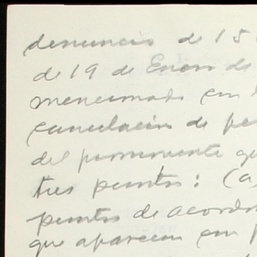 denuncio de 15
de 19 de Enero de
mencionado con
cancelación de
del promovente
tres puntos: (a)
puntos de acordo
que aparecen con